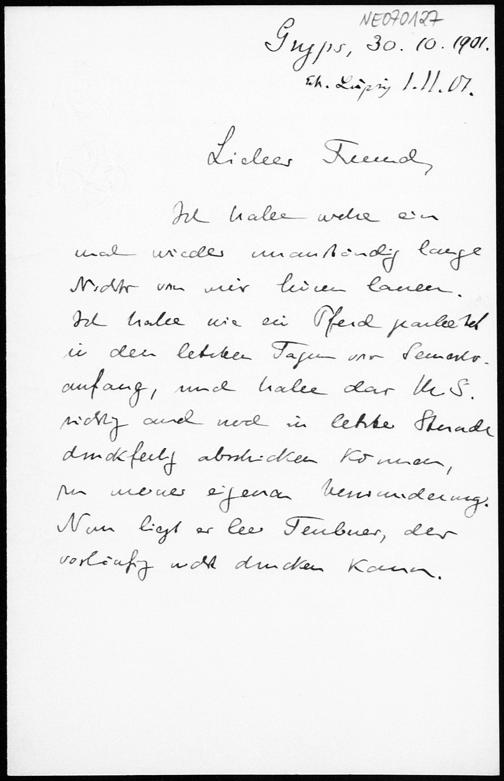 NE070127
Gryps, 30. 10. 1901.
Eh. Leipzig 1.11.01.
Lieber Freund,
Ich habe wohl ein
mal wieder unanständig lange
Nichts von mir hören lassen.
Ich habe wie ein Pferd gearbeitet
in den letzten Tagen vor Semester-
anfang, und habe das M.S.
richtig auch noch in letzter Stunde
druckfertig abschicken können,
zu meiner eigenen Verwunderung.
Nun liegt es bei Teubner, der
vorläufig nicht drucken kann.